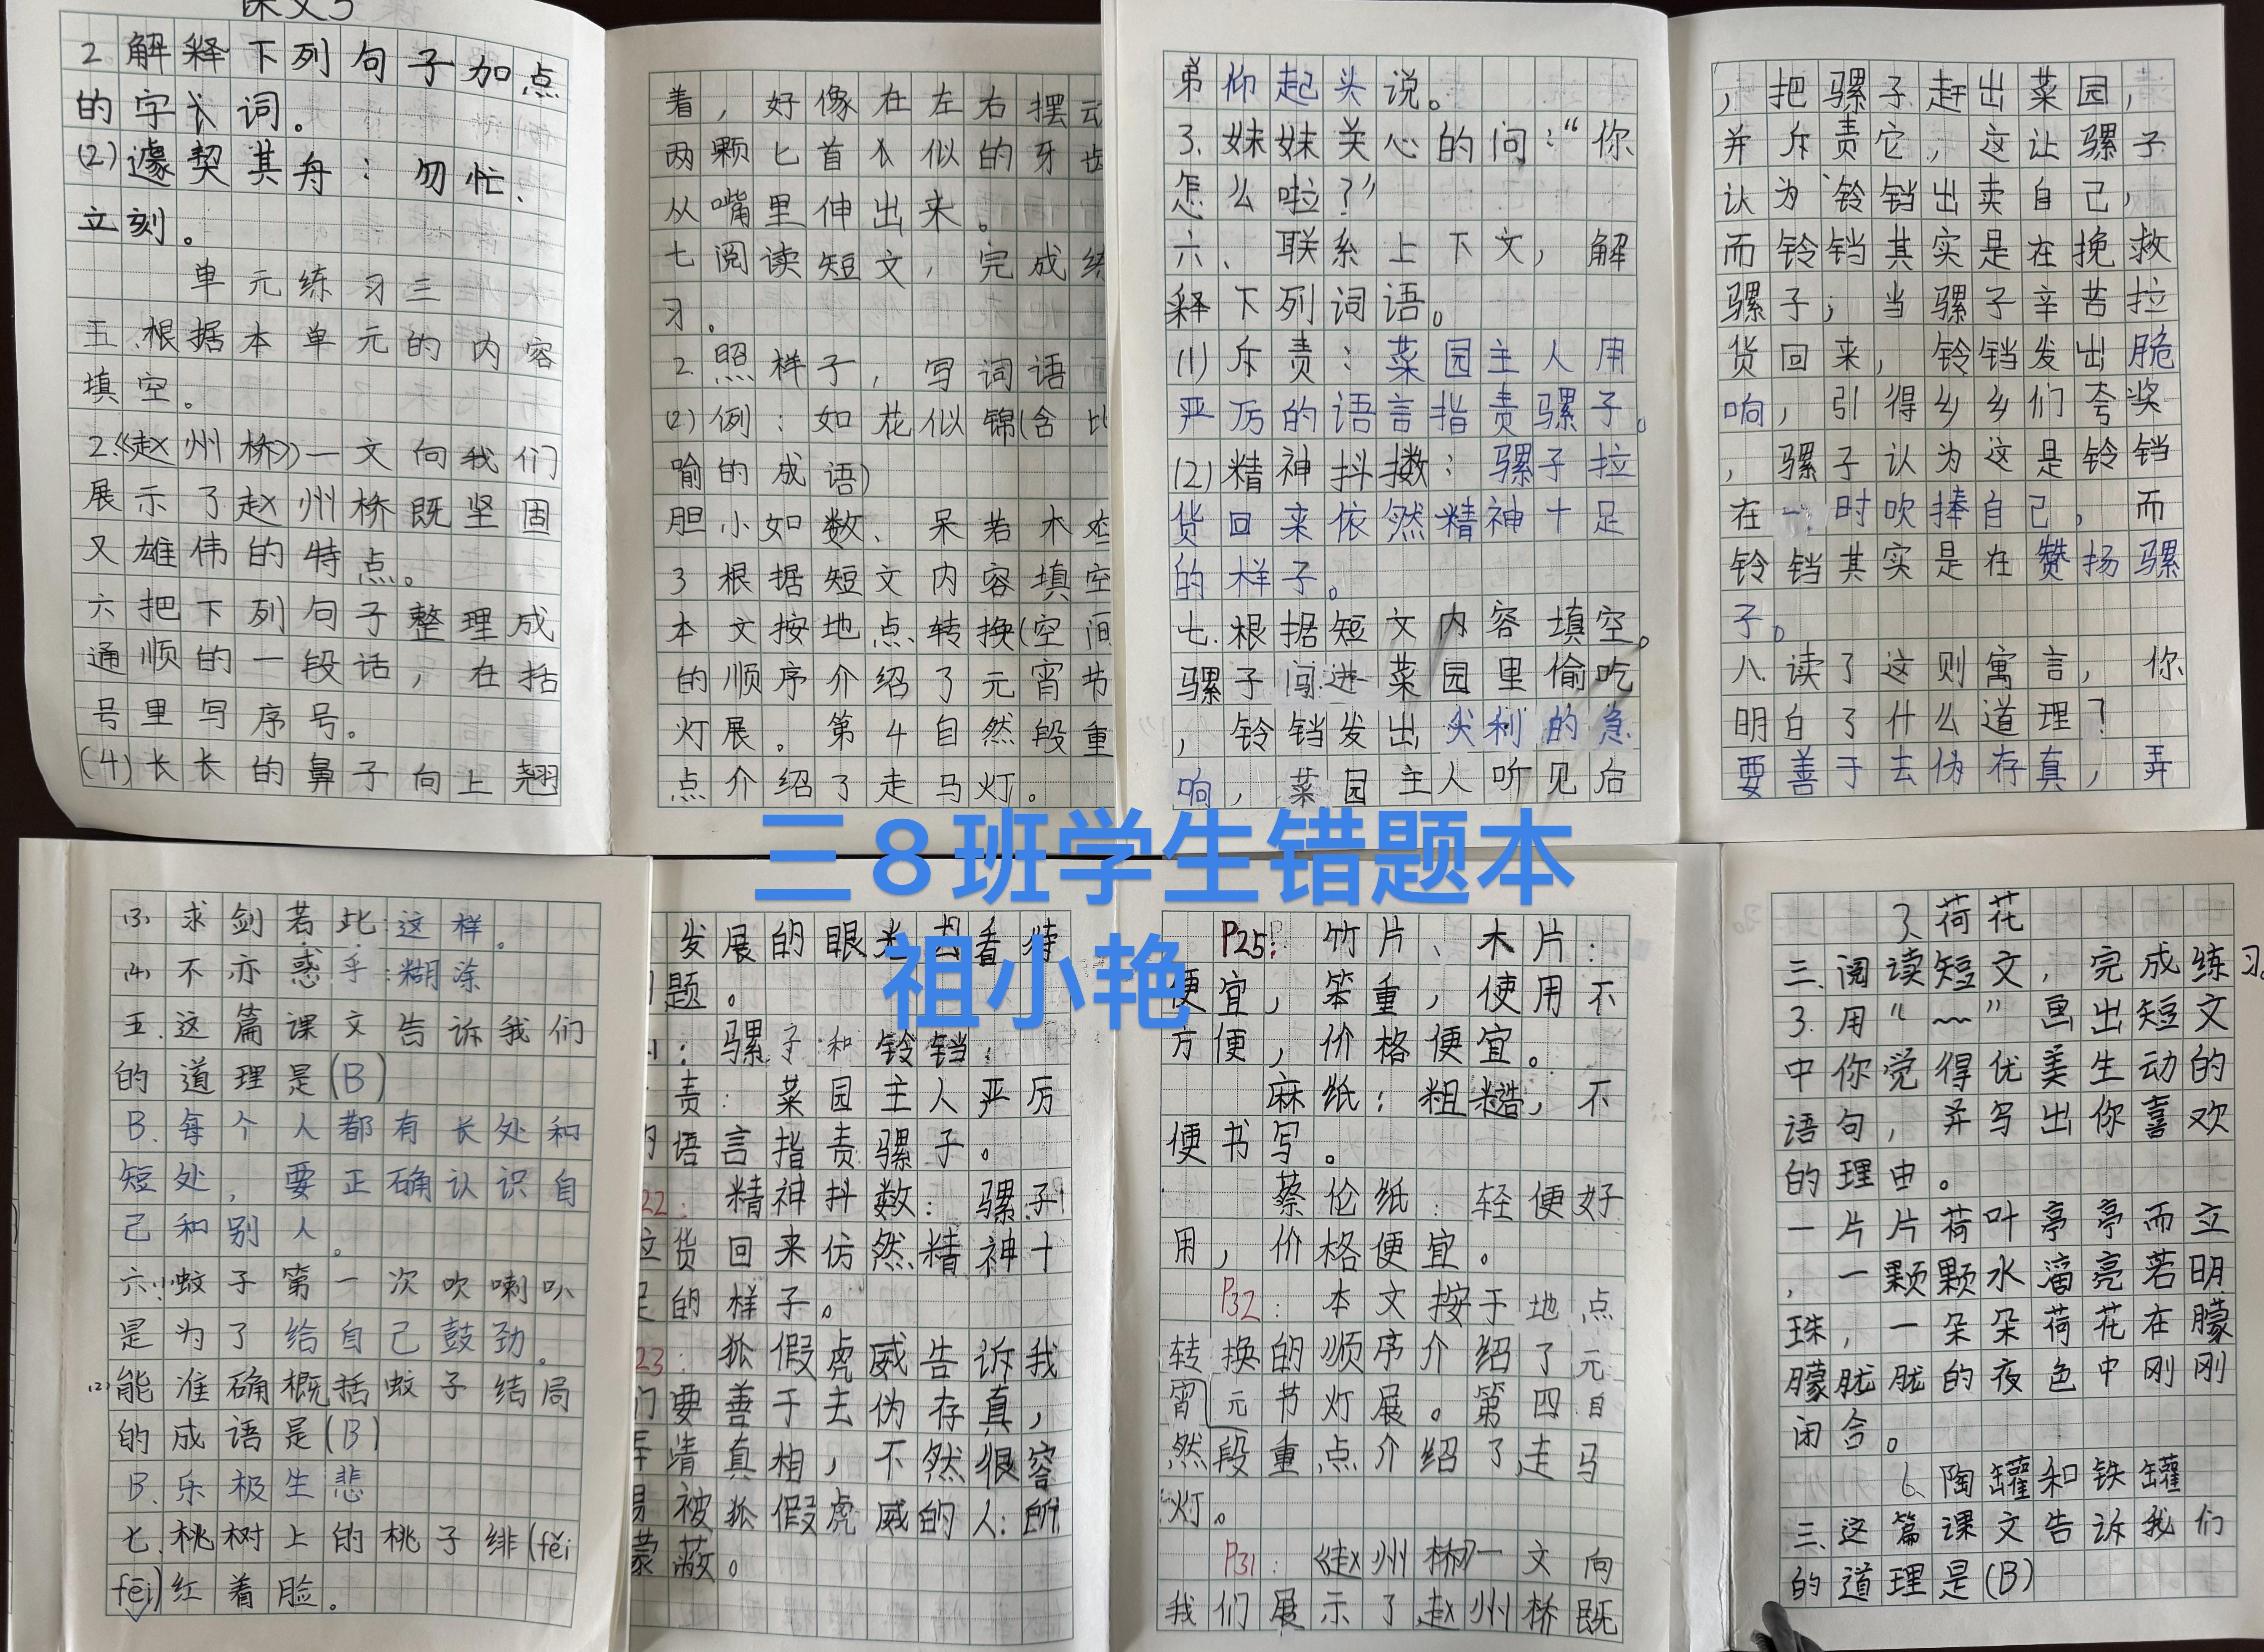 课文5
2 解释下列句子加点
的字 词。
(2)遽契其舟：勿忙、
立刻。
单元练习三
五.根据本单元的内容
填空。
2.《赵州桥》一文向我们
展示了赵州桥既坚固
又雄伟的特点。
六把下列句子整理成
通顺的一段话，在括
号里写序号。
(4)长长的鼻子向上翘
着，好像在左右摆动
两颗匕首 似的牙齿
从嘴里伸出来。
七阅读短文，完成练
习。
2.照样子，写词语
(2)例：如花似锦(含比
喻的成语)
胆小如数、呆若木
3 根据短文内容填空
本文按地点转换(空间
的顺序介绍了元宵节
灯展。第4自然段重
点介绍了走马灯。
弟仰起头说。
3.妹妹关心的问：“你
怎么啦？”
六、联系上下文，解
释下列词语。
(1)斥责：菜园主人用
严厉的语言指责骡子。
(2)精神抖擞：骡子拉
货回来依然精神十足
的样子。
七.根据短文内容填空。
骡子闯进菜园里偷吃
，铃铛发出尖利的急
响，菜园主人听见后
，把骡子赶出菜园，
并斥责它，这让骡子
认为铃铛出卖自己，
而铃铛其实是在挽救
骡子；当骡子辛苦拉
货回来，铃铛发出脆
响，引得乡乡们夸奖
，骡子认为这是铃铛
在 时吹捧自己，而
铃铛其实是在赞扬骡
子。
八.读了这则寓言，你
明白了什么道理？
要善于去伪存真，弄
三8班学生错题本
祖小艳
(3)求剑若此：这样。
(4)不亦惑乎：糊涂
五.这篇课文告诉我们
的道理是(B)
B.每个人都有长处和
短处，要正确认识自
己和别人。
六.蚊子第一次吹喇叭
是为了给自己鼓劲。
(2)能准确概括蚊子结局
的成语是(B)
B.乐极生悲
七.桃树上的桃子绯(fěi
fēi)红着脸。
发展的眼光去看待
题。
：骡子和铃铛：
责：菜园主人严厉
的语言指责骡子。
22：精神抖数：骡子
拉货回来仿然精神十
足的样子。
23：狐假虎威告诉我
们要善于去伪存真，
弄清真相，不然很容
易被狐假虎威的人所
蒙蔽。
P25：竹片、木片：
便宜，笨重，使用不
方便，价格便宜。
麻纸：粗糙，不
便书写。
蔡伦纸：轻便好
用，价格便宜。
P32：本文按于地点
转换的顺序介绍了元
宵元节灯展。第四自
然段重点介绍了走马
灯。
P31：《赵州桥》一文向
我们展示了赵州桥既
3、荷花
三.阅读短文，完成练习。
3.用“﹏”画出短文
中你觉得优美生动的
语句，并写出你喜欢
的理由。
一片片荷叶亭亭而立
，一颗颗水 亮若明
珠，一朵朵荷花在朦
朦胧胧的夜色中刚刚
闭合。
6、陶罐和铁罐
三.这篇课文告诉我们
的道理是(B)